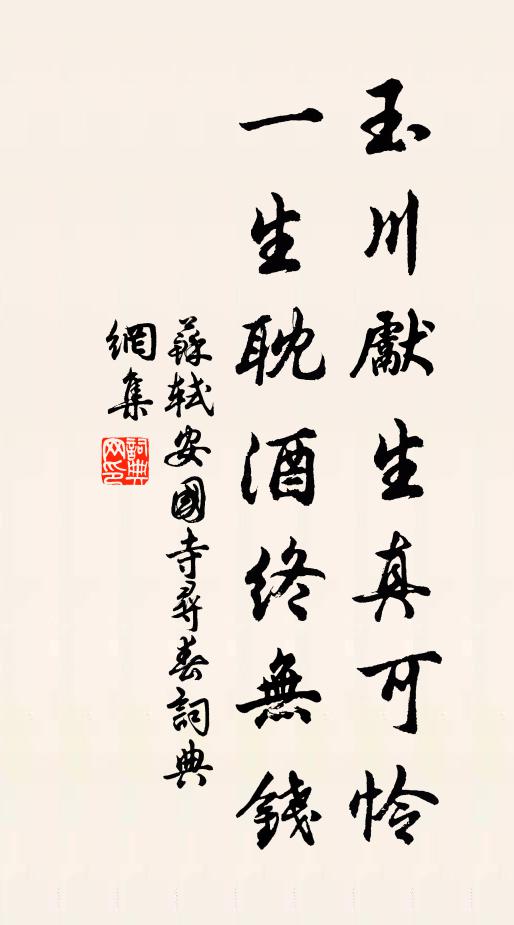 玉川獻生真可憐
一生耽酒終無錢
蘇軾安國寺尋春詞典
網集
詞典網印